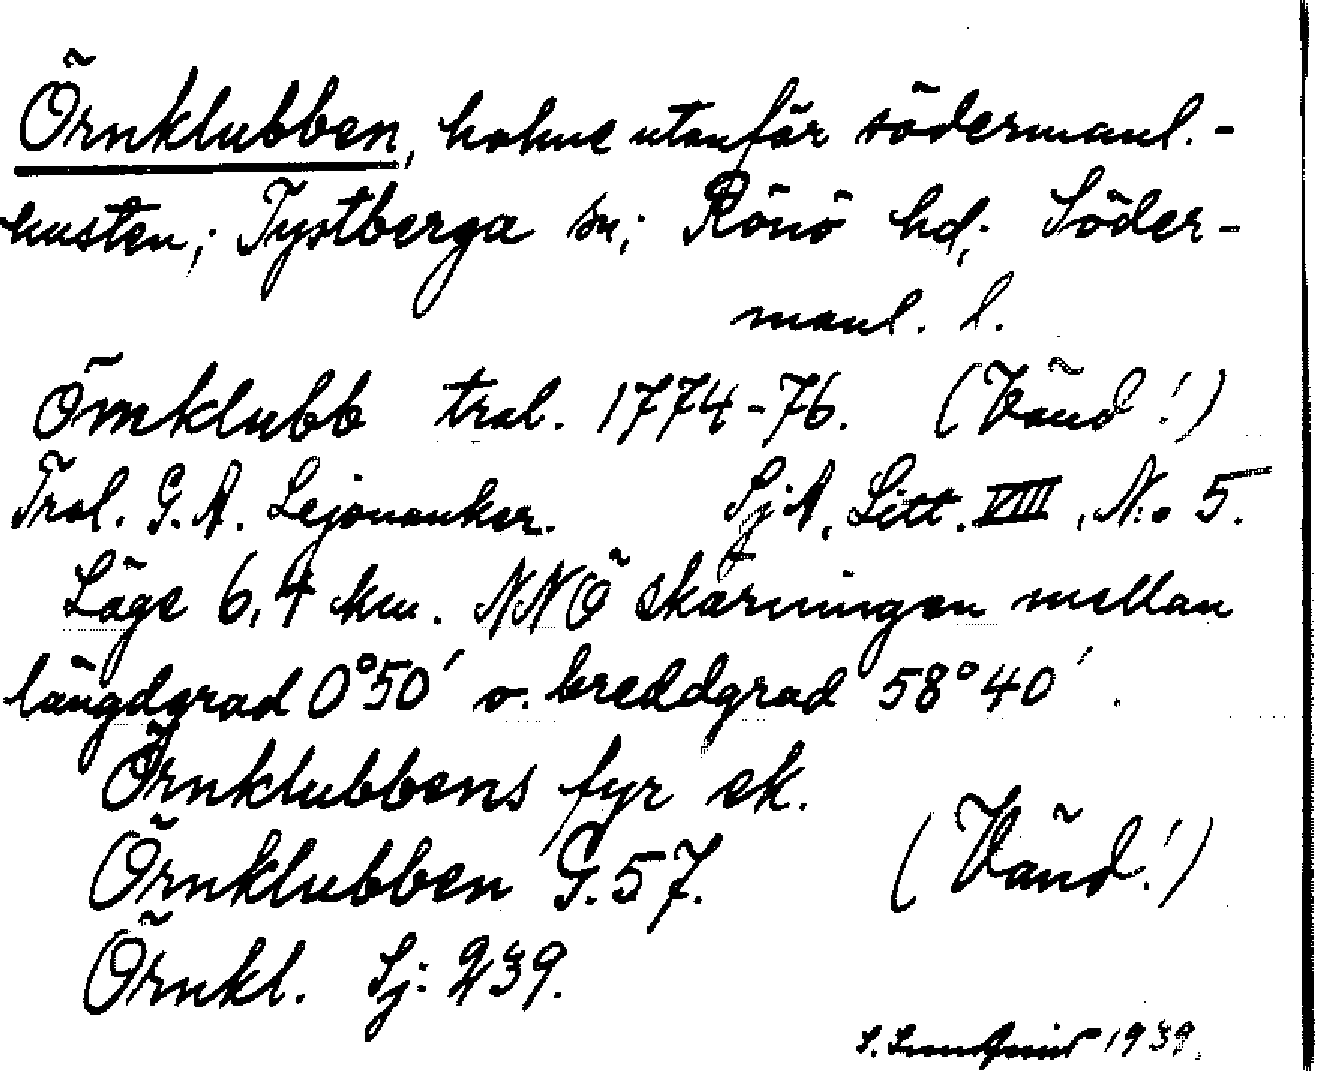 Örnklubben, holme utanför södermanl.-
kusten; Tystberga sn; Rönö hd; Söder-
manl. l.
Örnklubb tral. 1774-76. (Vänd!)
Tral. G. A. Lejonanker. SjA, Litt. VIII, N:o 5.
Läge 6,4 km. NNÖ skärningen mellan
längdgrad 0°50′ o. breddgrad 58°40′.
Örnklubbens fyr ek.
Örnklubben G. 57. (Vänd!)
Örnkl. Sj: 239.
1939.